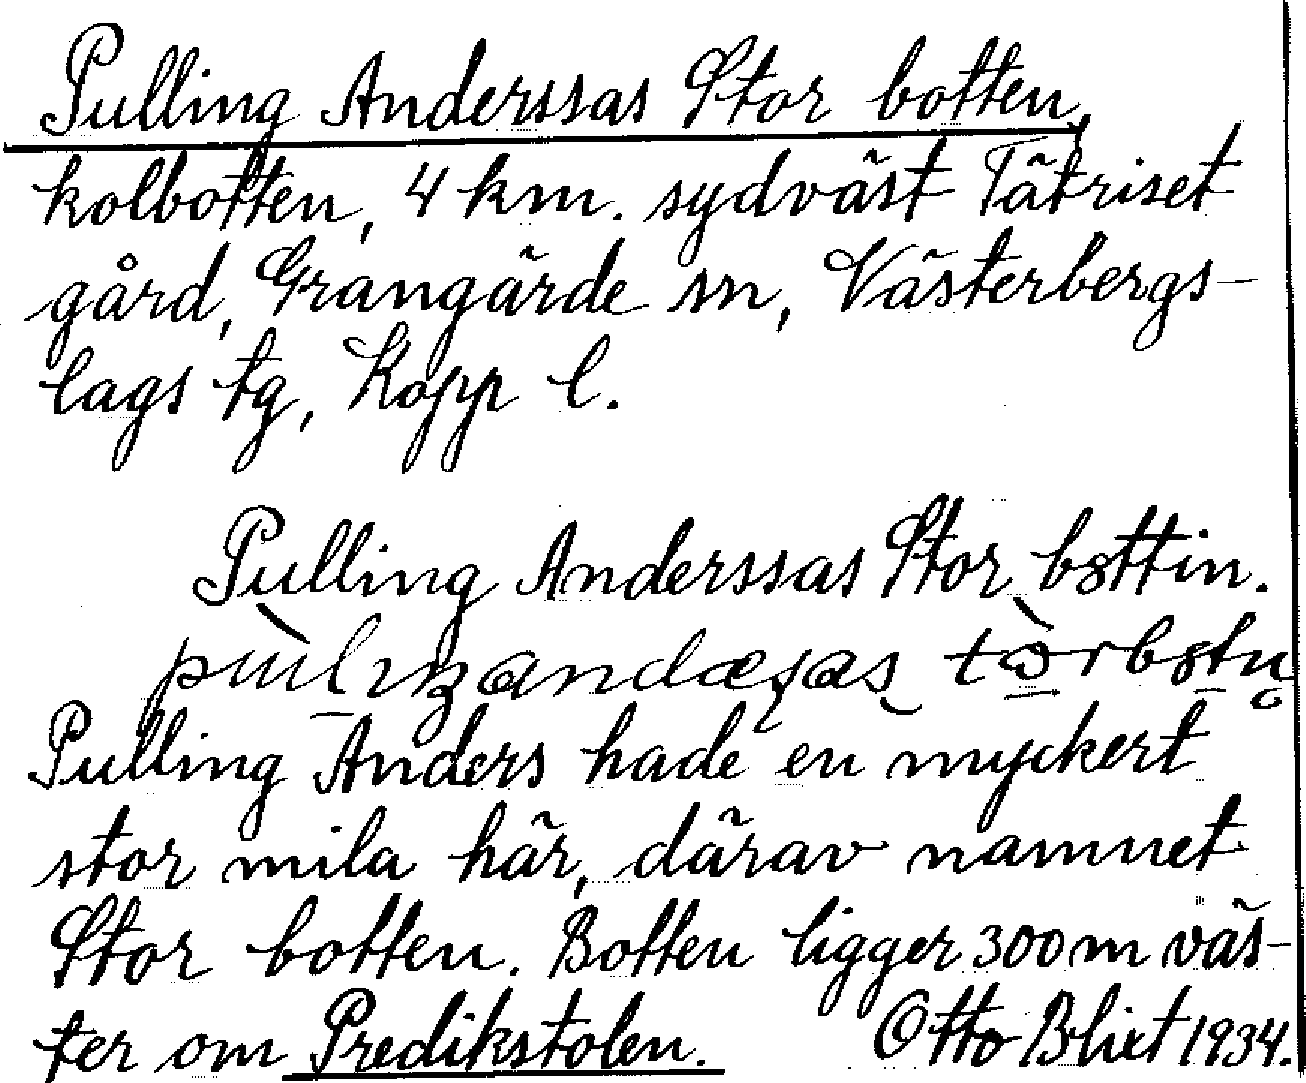 Pulling Anderssas Stor botten,
kolbotten, 4 km. sydväst Tätriset
gård, Grangärde sn, Västerbergs-
lags tg, Kopp l.
Pulling Anderssas Stor bottin.
Pulling Anders hade en myckert
stor mila här, därav namnet
Stor botten. Botten ligger 300 m väs-
ter om Predikstolen. Otto Blixt 1934.